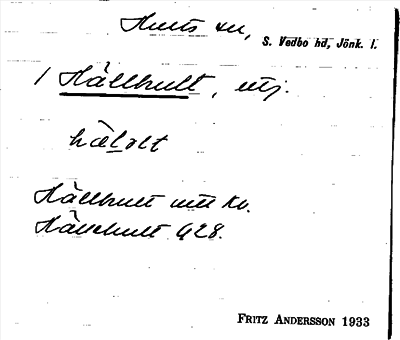 Hults sn, S. Vedbo hd, Jönk. l.
1 Hällhult, utj.
hæ̀lølt
Hällhult utt Kb.
Hällehult G 28.
FRITZ ANDERSSON 1933